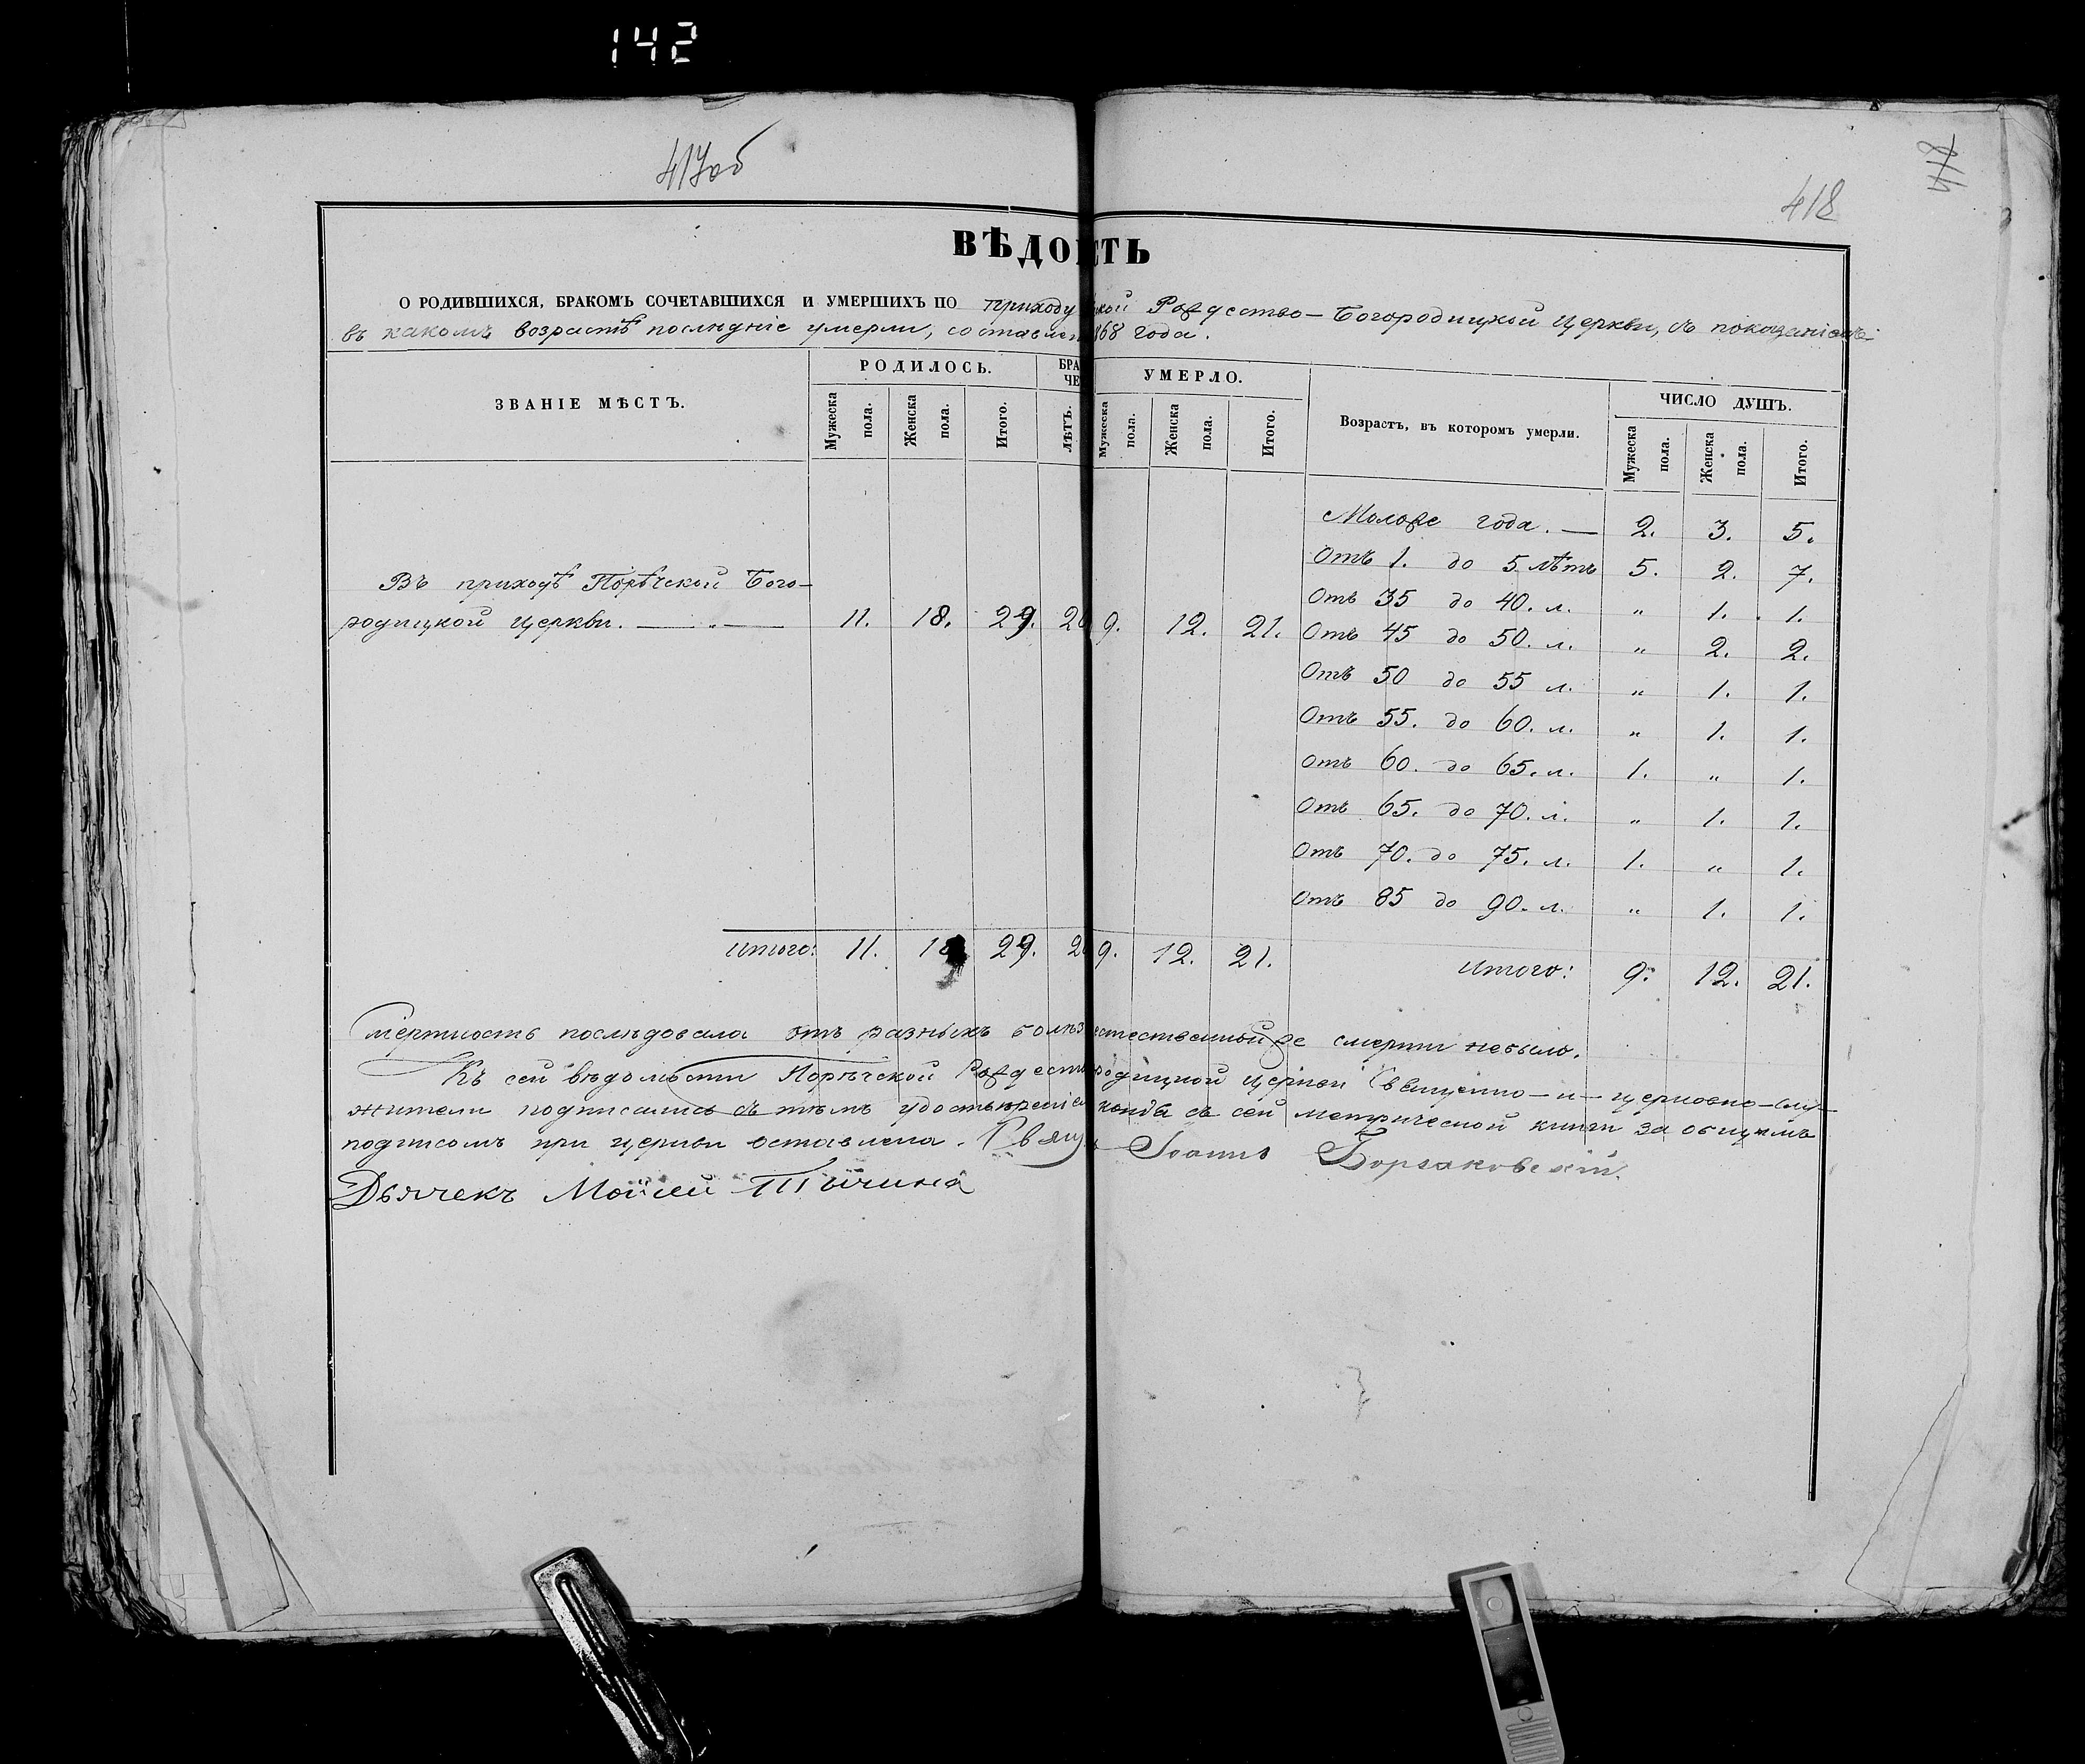 142
417об
418
418
ВѢДО СТЬ
О РОДИВШИХСЯ, БРАКОМЪ СОЧЕТАВШИХСЯ И УМЕРШИХЪ ПО приходу кой Рождество-Богородицкой Церкви, съ показаніемъ
въ какомъ возрастѣ послѣдніе умерли, составлен 68 года.
ЗВАНІЕ МѢСТЪ. РОДИЛОСЬ. БРА ЧЕ УМЕРЛО. Возрастъ, въ которомъ умерли. ЧИСЛО ДУШЪ.
Мужеска пола. Женска пола. Итого. ЛѢТЪ. Мужеска пола. Женска пола. Итого. Мужеска пола. Женска пола. Итого.
Моложе года. — 2. 3. 5.
Отъ 1. до 5 лѣтъ 5. 2. 7.
Въ приходѣ Порѣчской Бого-
Отъ 35 до 40. л. " 1. 1.
родицкой Церкви. — " — 11. 18. 29. 20 9. 12. 21. Отъ 45 до 50. л. " 2. 2.
Отъ 50 до 55 л. " 1. 1.
Отъ 55. до 60. л. " 1. 1.
Отъ 60. до 65. л. 1. " 1.
Отъ 65. до 70. л. " 1. 1.
Отъ 70. до 75. л. 1. " 1.
Отъ 85 до 90. л. " 1. 1.
Итого: 11. 18 29. 20 9. 12. 21. Итого: 9. 12. 21.
Смертность послѣдовала отъ разныхъ болѣз естественной же смерти небыло.
Къ сей вѣдомости Порѣчской Рождеств родицкой церкви Священно-и-церковно-слу-
жители подписались съ тѣмъ удостовѣреніе копія съ сей метрической книги за общимъ
подписомъ при церкви оставлена. Свящ Іоаннъ Борзаковскій.
Дьячекъ Моѵсей